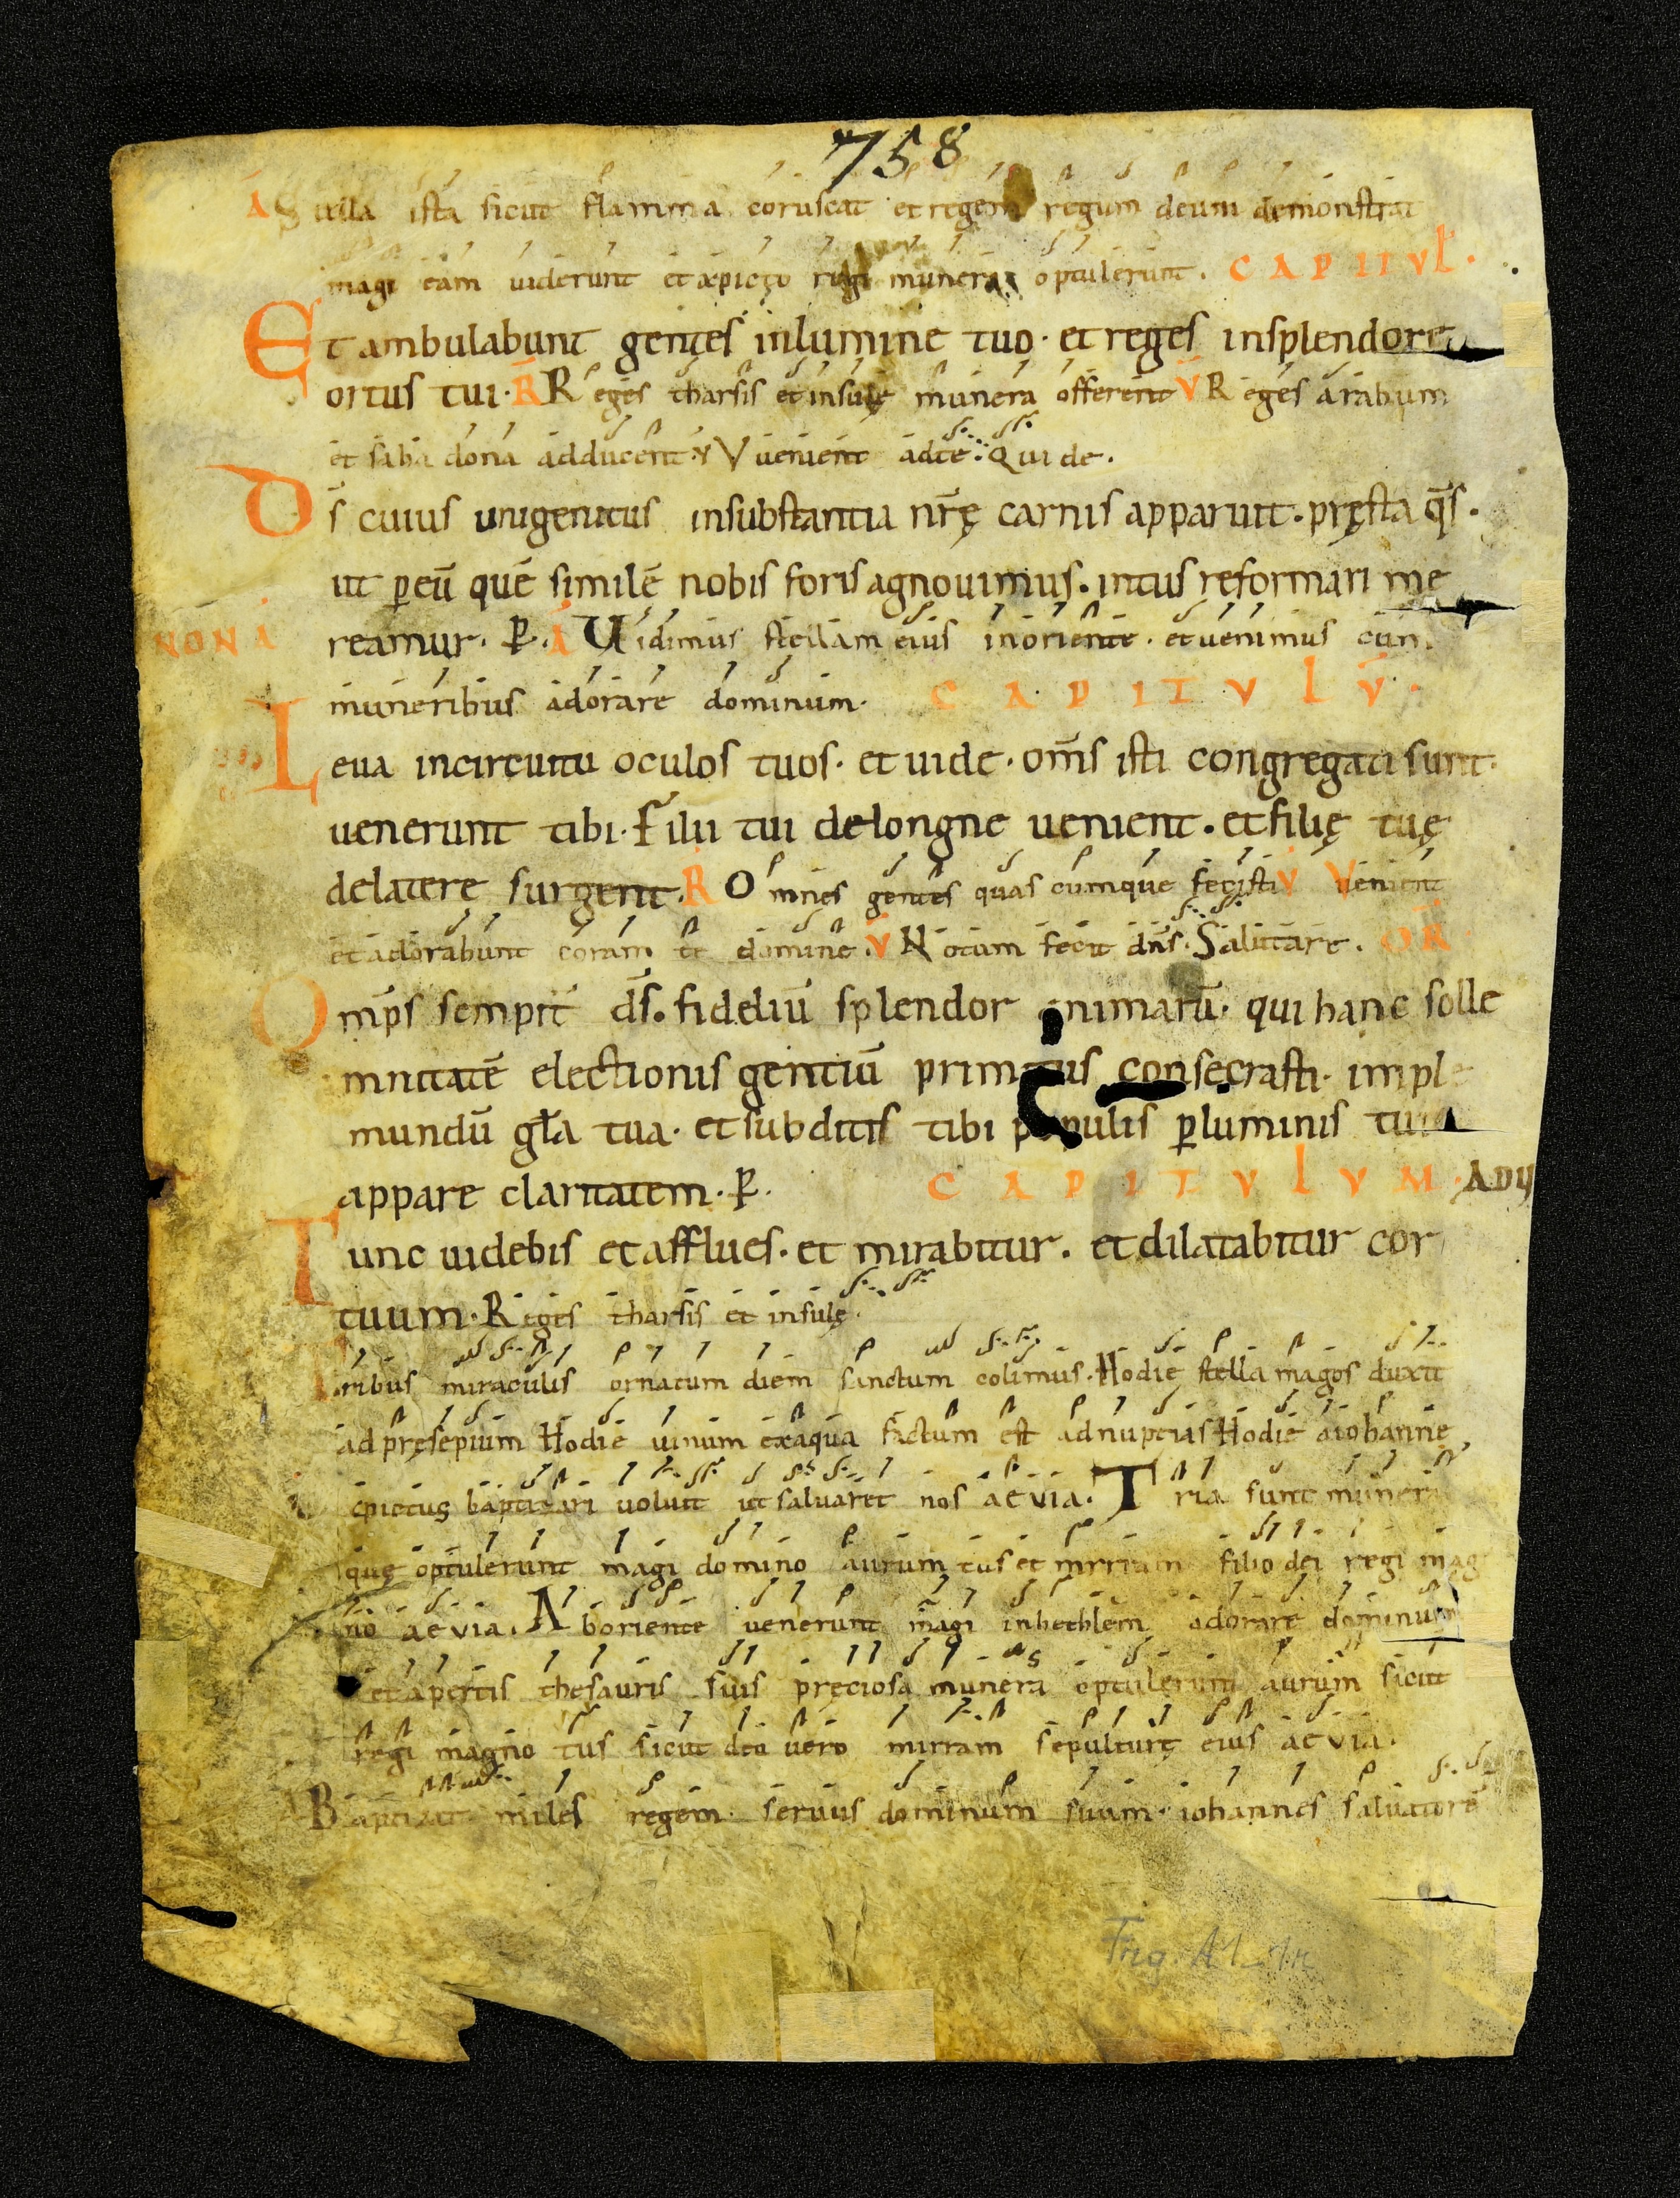 758
A Stella ista sicut flamma coruscat et regem regum deum demonstrat
magi eam uiderunt et xpicto regi munera optulerunt. CAPITVL.
Et ambulabunt gentes inlumine tuo. et reges insplendore
ortus tui. R Reges tharsis et insulę munera offerent V Reges arabum
et saba dona adducent. V Vuenient adte. Qui de.
Ds̄ cuius unigenitus insubstantia nr̄ę carnis apparuit. pręsta q̄s.
ut ꝑeū quē similē nobis foris agnouimus. intus reformari me
NONA reamur. P. A Uidimus stellam eius inoriente. et uenimus cum
muneribus adorare dominum. CAPITVLV̄.
Leua incircuitu oculos tuos. et uide. om̄s isti congregati sunt.
uenerunt tibi. Filii tui delongne uenient. et filię tuę
delatere surgent. R Omnes gentes quas cumque fecisti V Venient
et adorabunt coram te domine. V Notum fecit dn̄s. Salutare. OR
Omp̄s sempit̄ ds̄. fideliū splendor animarū. qui hanc solle
mnitatē electionis gentiū primitiis consecrasti. imple
mundū gl̄a tua. et subditis tibi populis ꝑluminis tui
appare claritatem. P. CAPITVLVM. ADV
Tunc uidebis et afflues. et mirabitur. et dilatabitur cor
tuum. Reges tharsis et insulę.
Tribus miraculis ornatum diem sanctum colimus. Hodie stella magos duxit
ad pręsepium Hodie uinum exaqua factum est ad nuptias Hodie aiohanne
xpictus baptizari uoluit ut saluaret nos aevia. Tria sunt munera
quę optulerunt magi domino aurum tus et mirram filio dei regi mag
no aevia. Aboriente uenerunt magi inbethlem adorare dominum
et apertis thesauris suis preciosa munera optulerunt aurum sicut
regi magno tus sicut deo uero mirram sepulturę eius aevia.
A Baptizat miles regem. seruus dominum suum. iohannes saluatorē